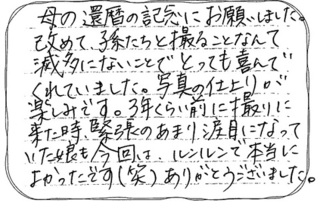 母の還暦の記念にお願いしました。
改めて、孫たちと撮ることなんて
滅多にないことでとっても喜んで
くれていました。写真の仕上りが
楽しみです。3年くらい前に撮りに
来た時、緊張のあまり涙目になって
いた娘も今回は、ルンルンで本当に
よかったです(笑)ありがとうございました。